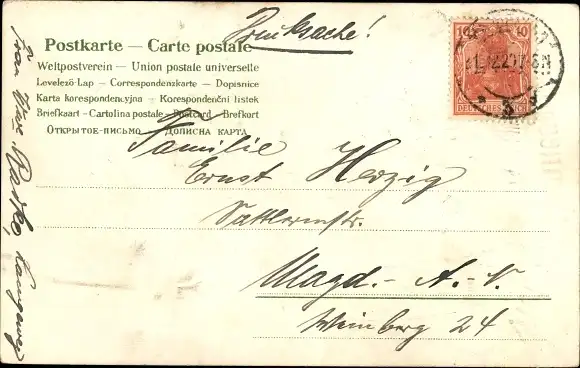 Drucksache!
Postkarte — Carte postale
Weltpostverein — Union postale universelle
Levelező-Lap — Correspondenzkarte — Dopisnice
Karta korespondencyjna — Korespondenční lístek
Briefkaart — Cartolina postale — Postcard — Brefkort
Открытое-письмо Дописна карта
10 10
DEUTSCHES REICH
Familie
Ernst Herzig
Sattlermstr.
Magd.- A.-N.
Weinberg 24
Frau